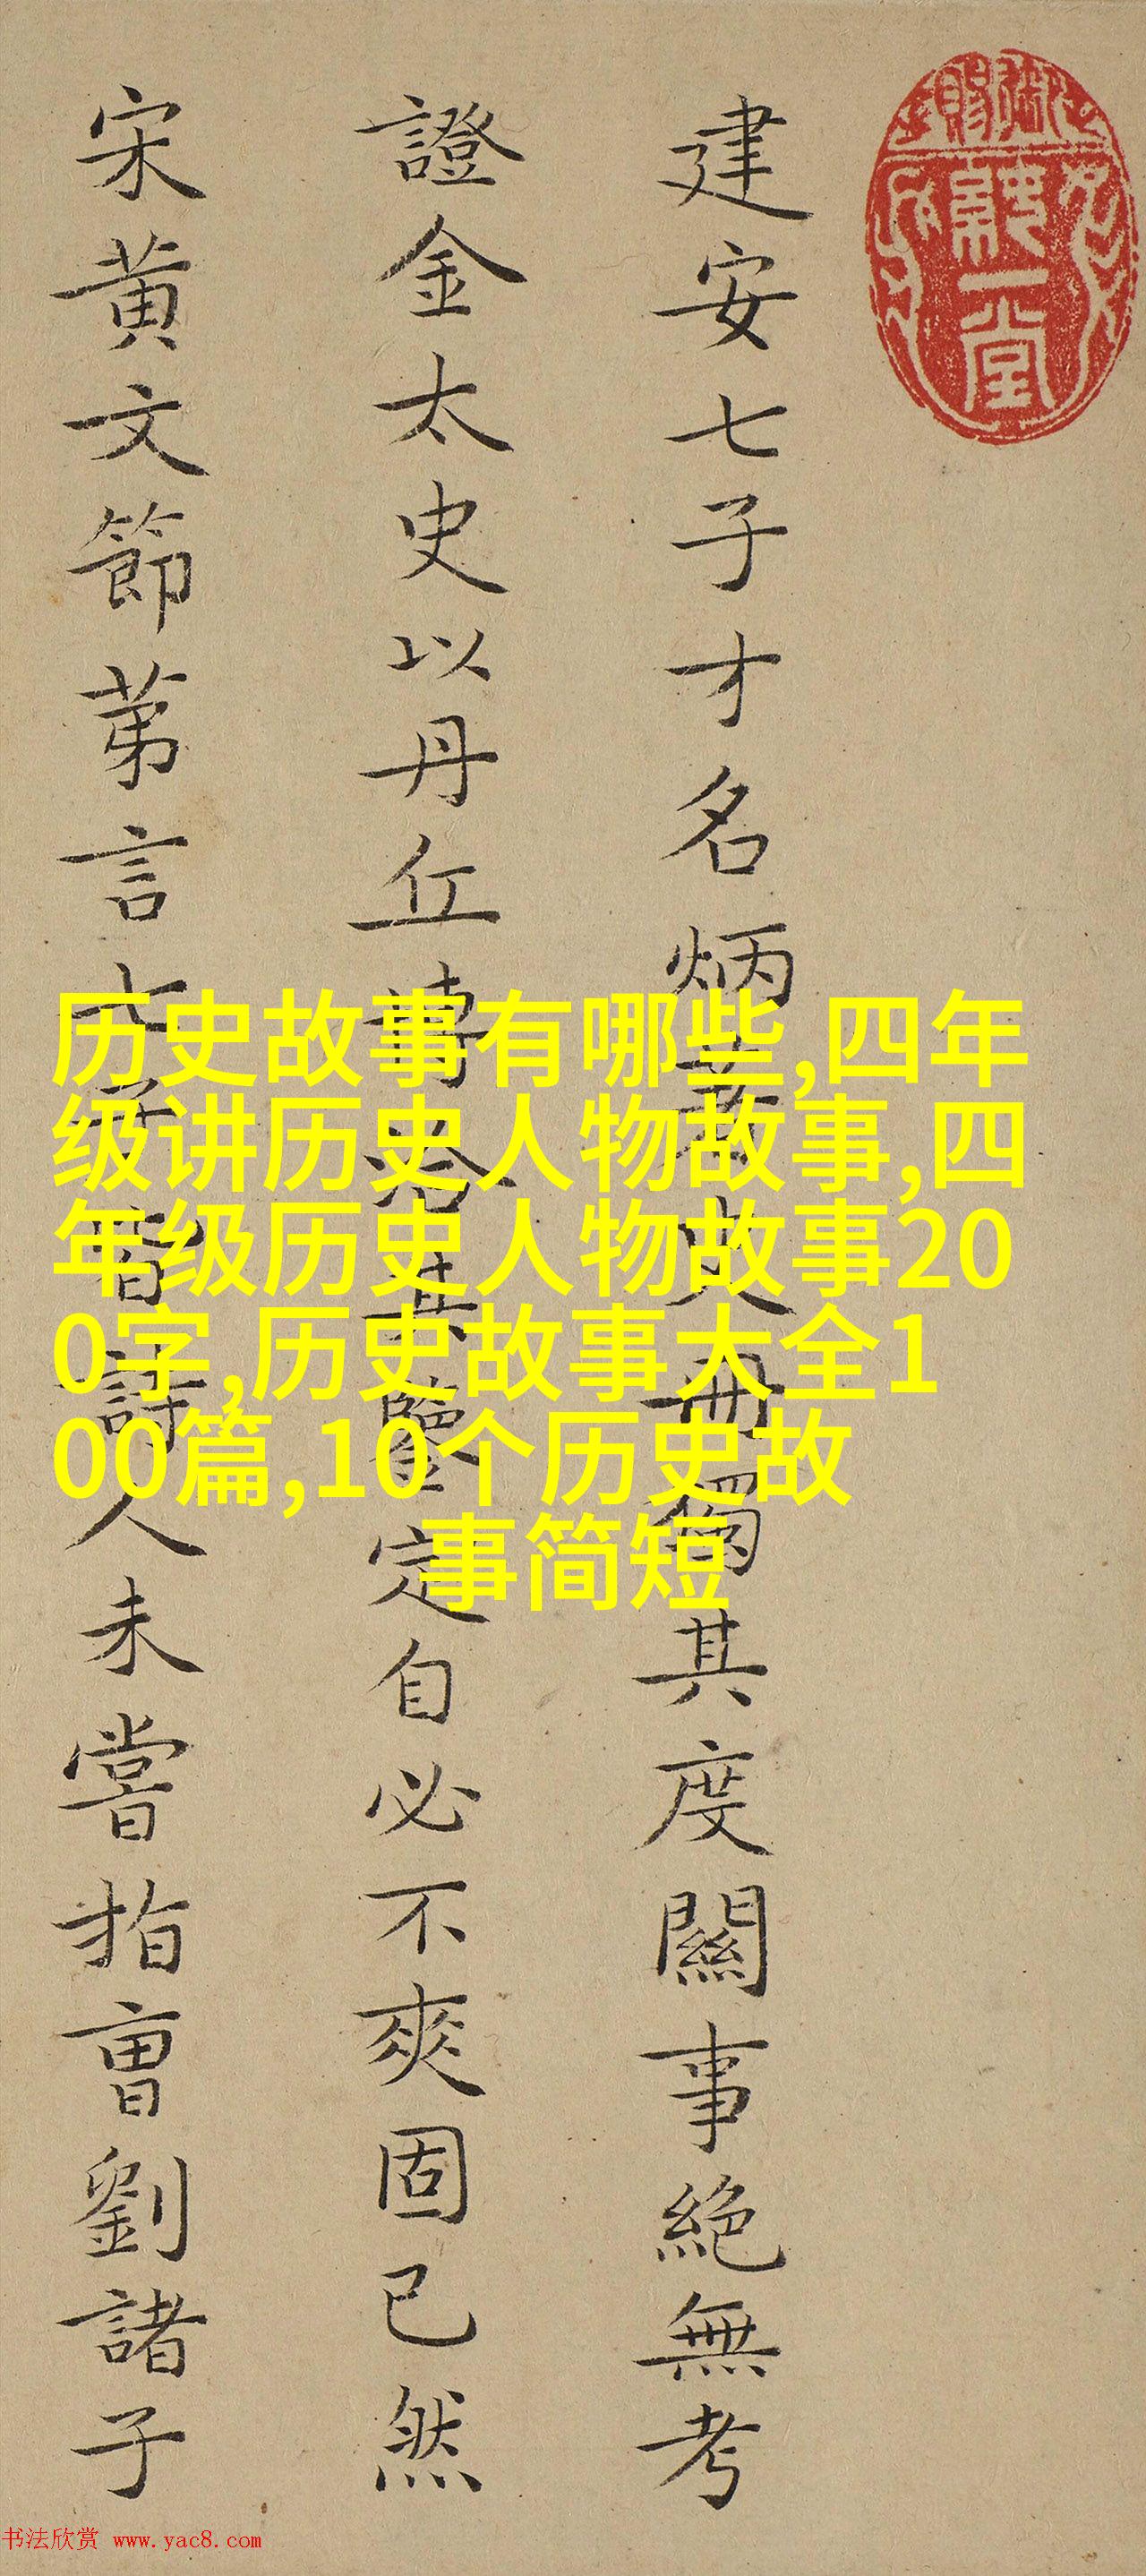 建安七子才名炳著史冊獨其度關事絶無考
證金太史以丹丘博洽其鑒定自必不爽固已然
宋黄文節苐言七子皆詩人未嘗指曹劉諸子
历史故事有哪些,四年
级讲历史人物故事,四
年级历史人物故事20
0字,历史故事大全1
00篇,10个历史故
事简短
书法欣赏 www.yac8.com